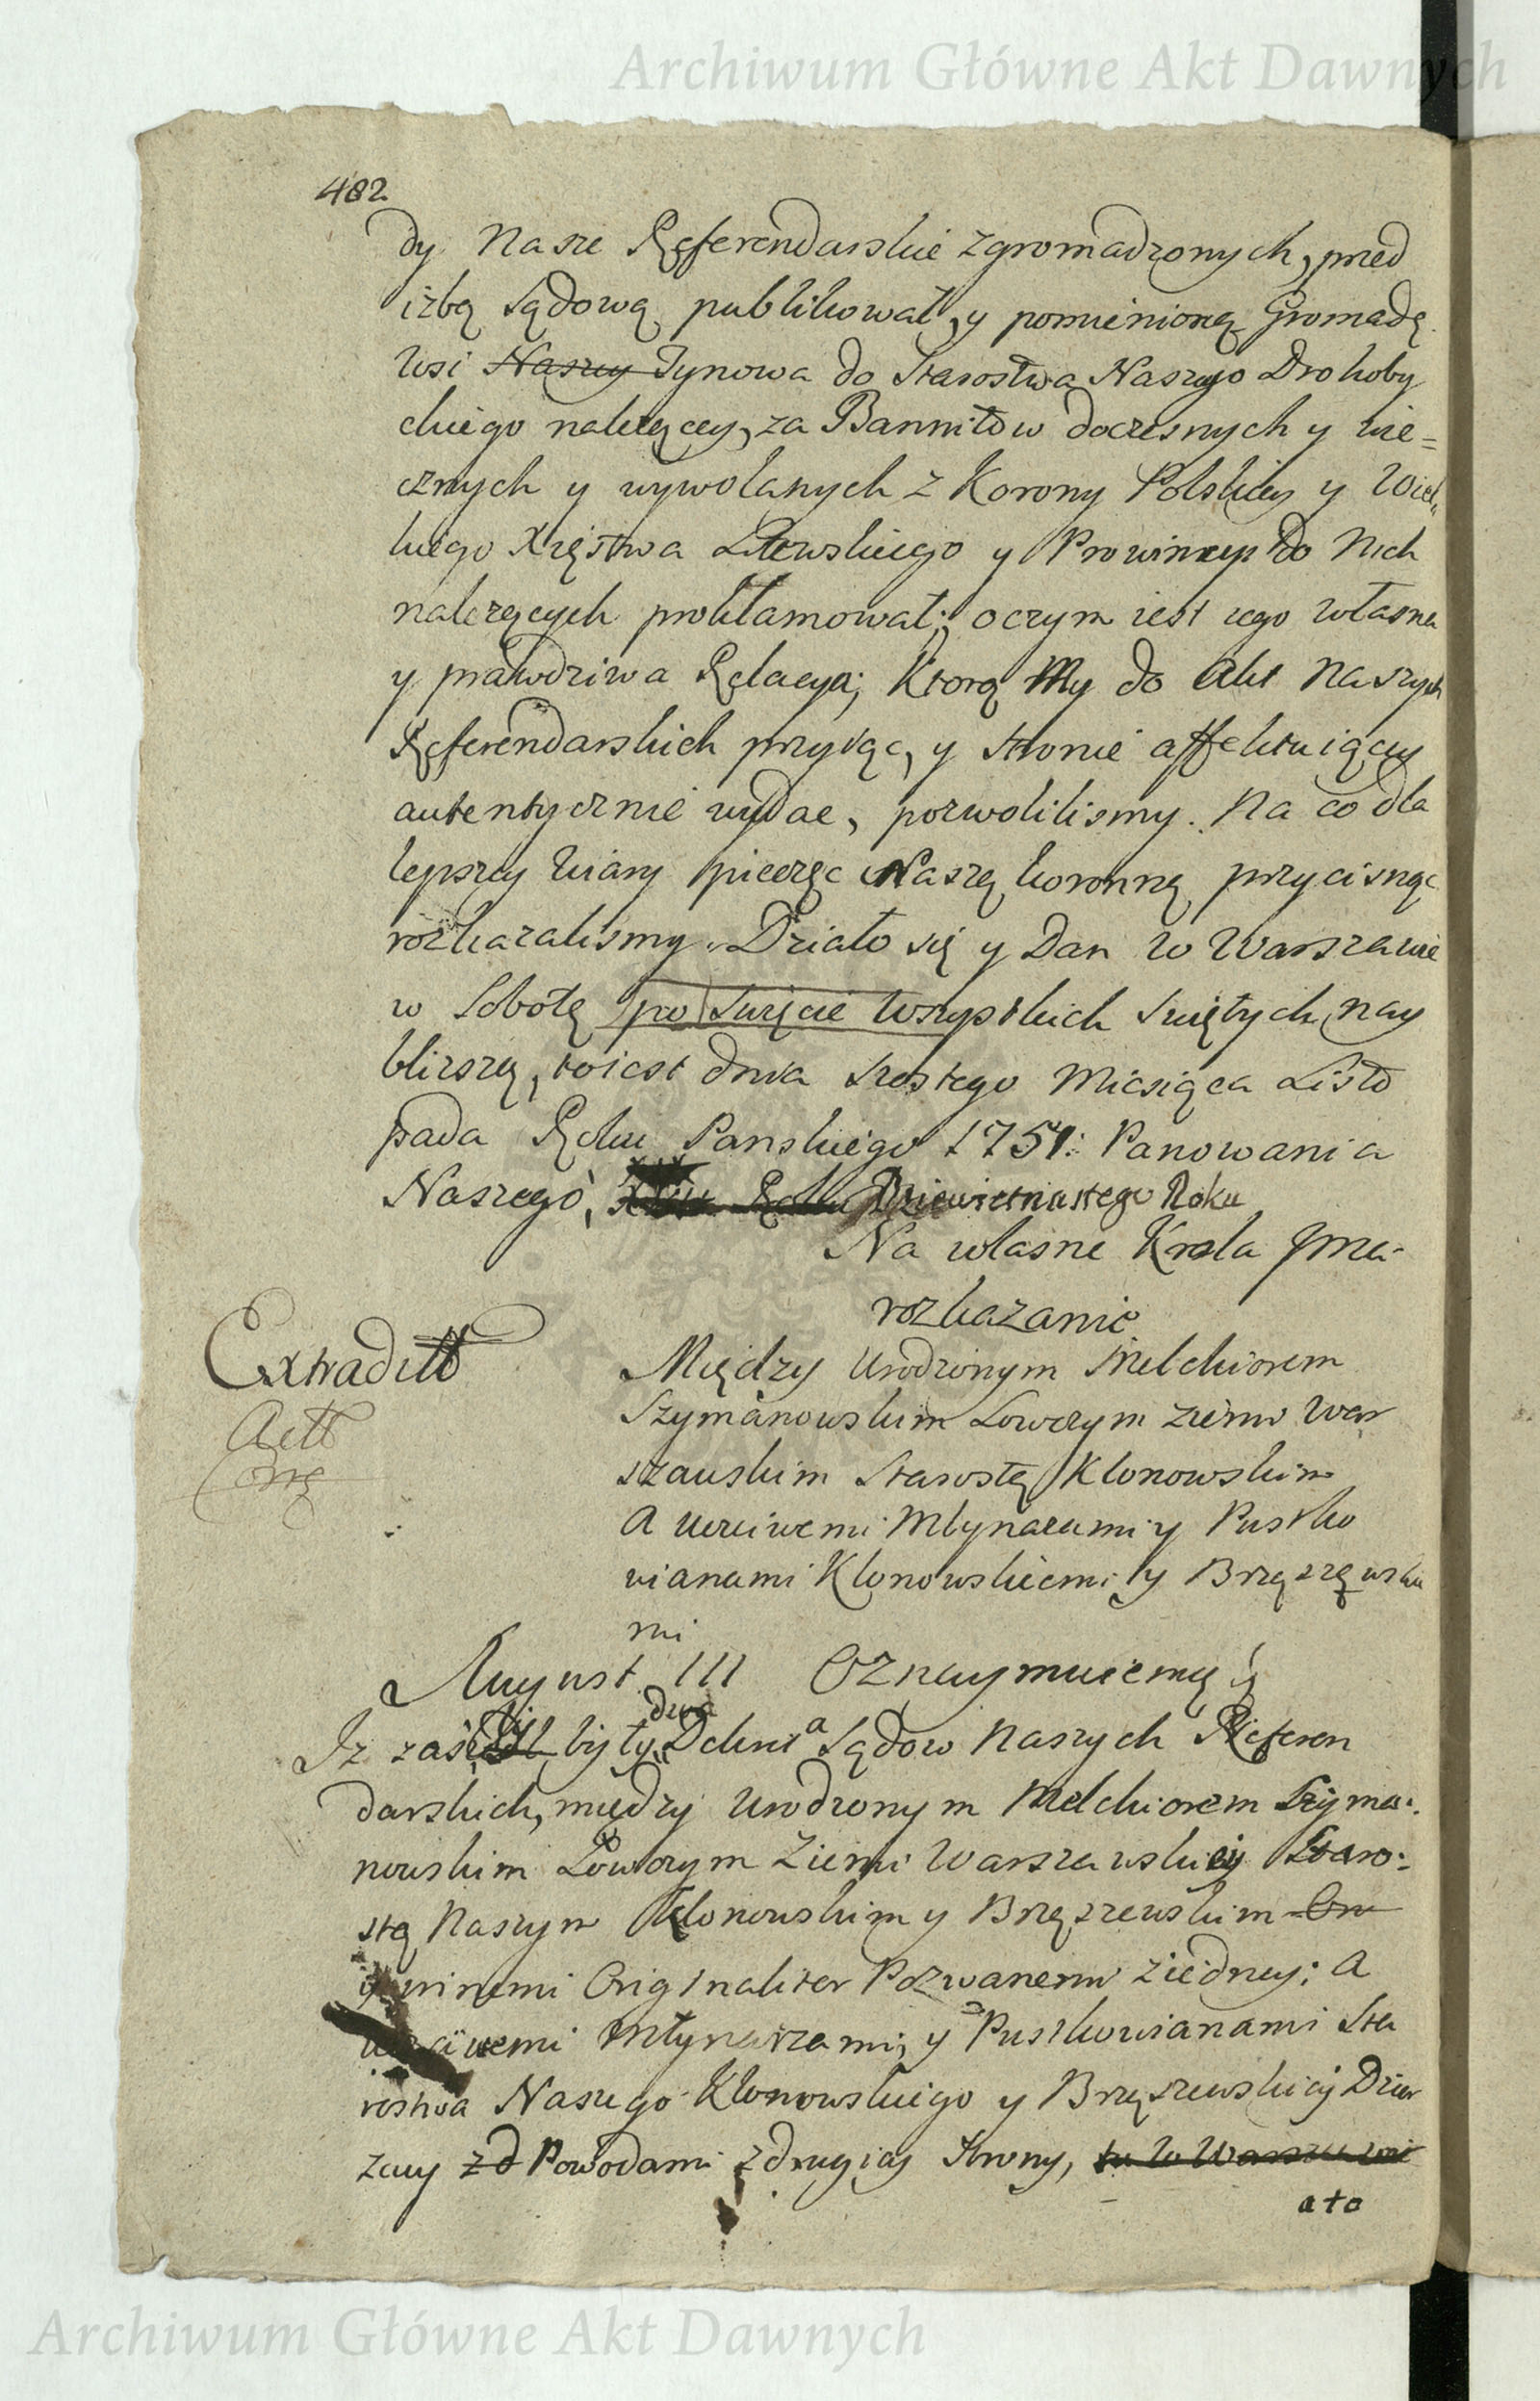 Archiwum Główne Akt Dawnych
482
dy Nasze Referendarskie zgromadzonych, przed
izbą Sądową publikował, y pomienioną Gromadę
Wsi Naszey Tynowa do Starostwa Naszego Drohoby
ckiego należącey, za Bannitow doczesnych y wie=
cznych y wywołanych z Korony Polskiey y Wiel,,
kiego Xięstwa Litewskiego y Prowincyi do Nich
należących proklamował; o czym iest iego własna
y prawdziwa Relacya; Ktorą My do Akt Naszych
Referendarskich przyiąc, y stronie affektuiącey
autentycznie wydac, pozwolilismy. Na co dla
lepszey Wiary pieczęc Naszą koronną przycisnąc
rozkazalismy. Działo się y Dan w Warszawie
w Sobotę po Swięcie Wszystkich Swiętych nay
bliszszą, toiest dnia szostego Miesiąca Listo
pada Roku Panskiego 1751: Panowania
Naszego, Roku Dziewietnastego Roku
Na własne Krola Jmci
rozkazanie
Extraditt
Actt
Między Urodzonym Melchiorem
Szymanowskim Łowczym ziemi War
szauskim Starostą Klonowskim
A Uczciwemi Młynarzami y Pustko
wianami Klonowskiemi y Brzęszęwski
mi
August III Oznaymuiemy
Iz zaszły były dwa Dekreta Sądow Naszych Referen
darskich, między Urodzonym Melchiorem Szyma:
nowskim Łowczym Ziemi Warszawskiey Staro:
stą Naszym Klonowskim y Brzęszewskim
y innemi Originaliter Pozwanemi z iedney; A
Uczciwemi Młynarzami, y Pustkowianami Sta
rostwa Naszego Klonowskiego y Brzęszewskiey Dzier
zawy zd Powodami z drugiey Strony, tu w Warszawie
ato
Archiwum Główne Akt Dawnych